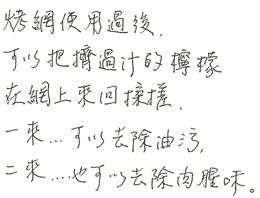 烤網使用過後.
可以把擠過汁的檸檬
在網上來回搓揉.
一來...可以去除油污,
二來....也可以去除肉腥味。